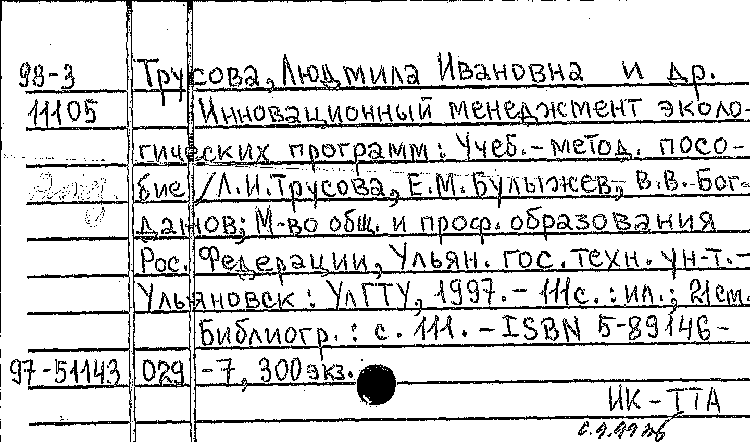 98-3 Трусова, Людмила Ивановна и др.
11105 Инновационный менеджмент эколо-
гических программ: Учеб.-метод. посо-
бие/Л.И.Трусова, Е.М.Булыжев, В.В.Бог-
данов; М-во общ. и проф. образования
Рос. Федерации, Ульян. гос. техн. ун-т.-
Ульяновск: УлГТУ, 1997.- 111с.: ил.; 21см.
Библиогр.: с. 111. - ISBN 5-89146-
97-51143 029 -7, 300экз.
ИК-ТТА